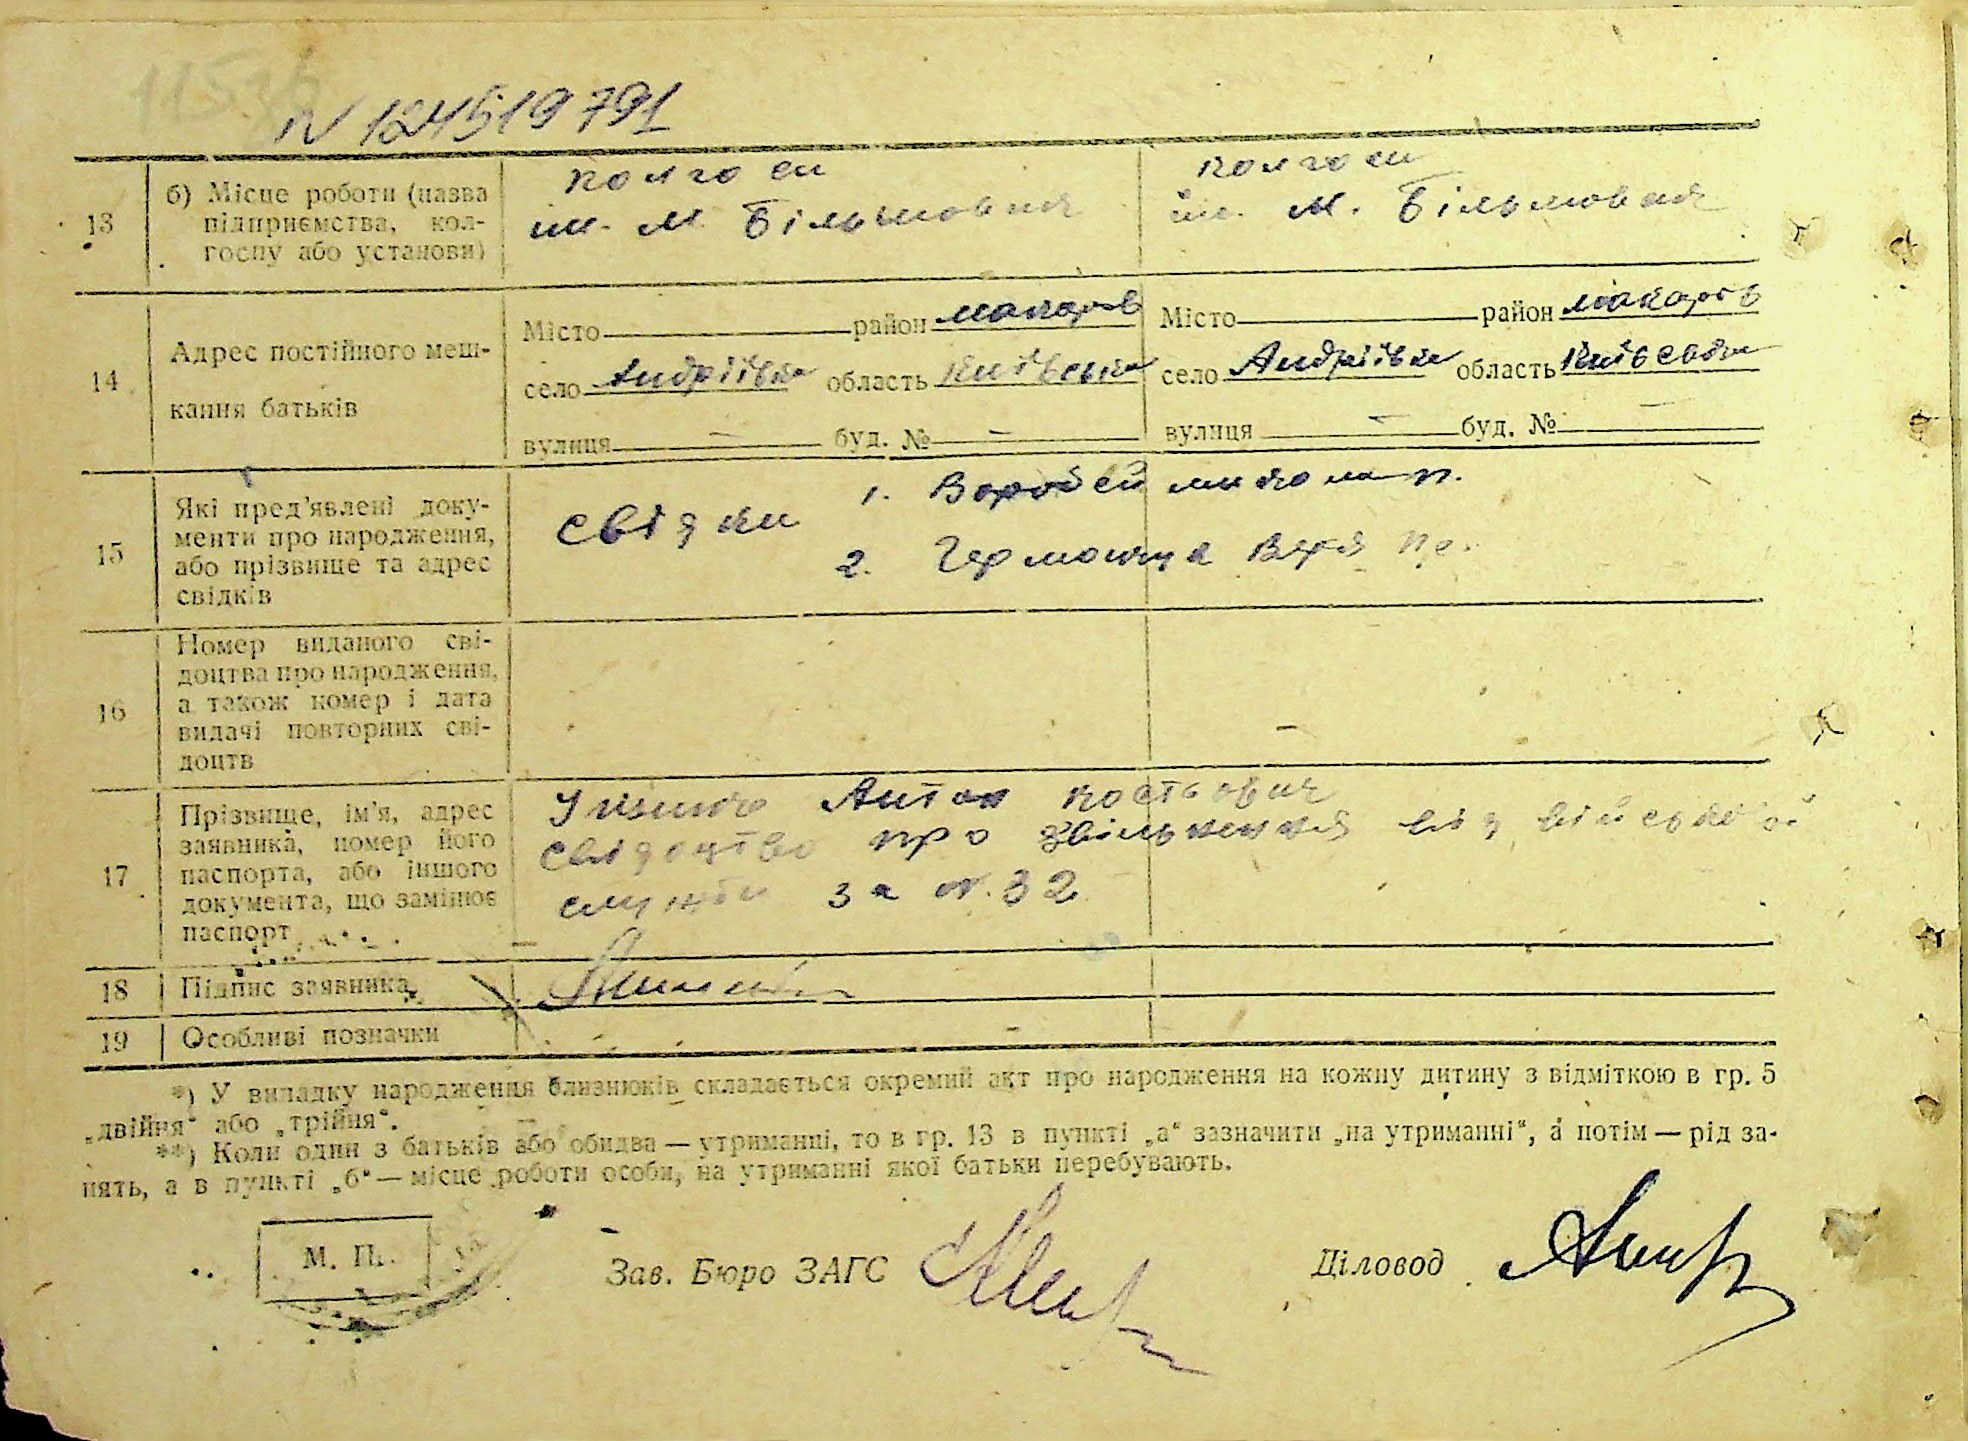 N 124519791
13
б) Місце роботи (назва
підприємства, кол-
госпу або установи)
колгосп
ім. М.
колгосп
ім. М.
14
Адрес постійного меш-
кання батьків
Місто район Макарів
село Андріївка область Київська
вулиця — буд. № —
Місто район Макарів
село Андріївка область Київська
вулиця — буд. № —
15
Які пред'явлені доку-
менти про народження,
або прізвище та адрес
свідків
свідки
1. Воробей
2. Віра
16
Номер виданого сві-
доцтва про народження,
а також номер і дата
видачі повторних сві-
доцтв
17
Прізвище, ім'я, адрес
заявника, номер його
паспорта, або іншого
документа, що замінює
паспорт
Антон
свідоцтво про звільнення від військової
служби за N. 32
18
Підпис заявника
19
Особливі позначки
*) У випадку народження близнюків складається окремий акт про народження на кожну дитину з відміткою в гр. 5
„двійня“ або „трійня“.
**) Коли один з батьків або обидва — утриманні, то в гр. 13 в пункті „а“ зазначити „на утриманні“, а потім — рід за-
нять, а в пункті „б“ — місце роботи особи, на утриманні якої батьки перебувають.
М. П.
Зав. Бюро ЗАГС
Діловод